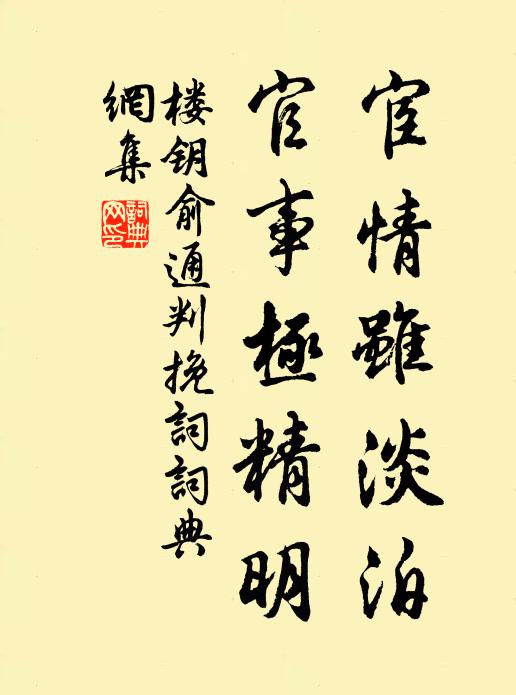 宦情雖淡泊
官事極精明
楼钥俞通判挽詞詞典
網集
詞典
网印